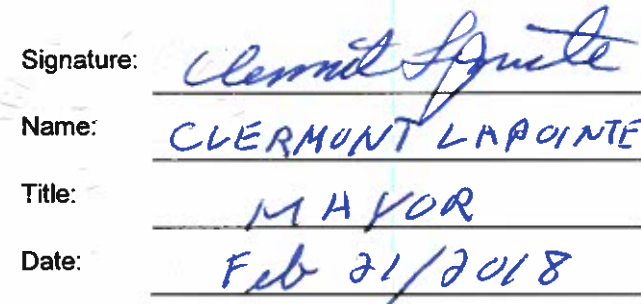 Signature: Clermont Lapointe
Name: CLERMONT LAPOINTE
Title: MAYOR
Date: Feb 21/2018